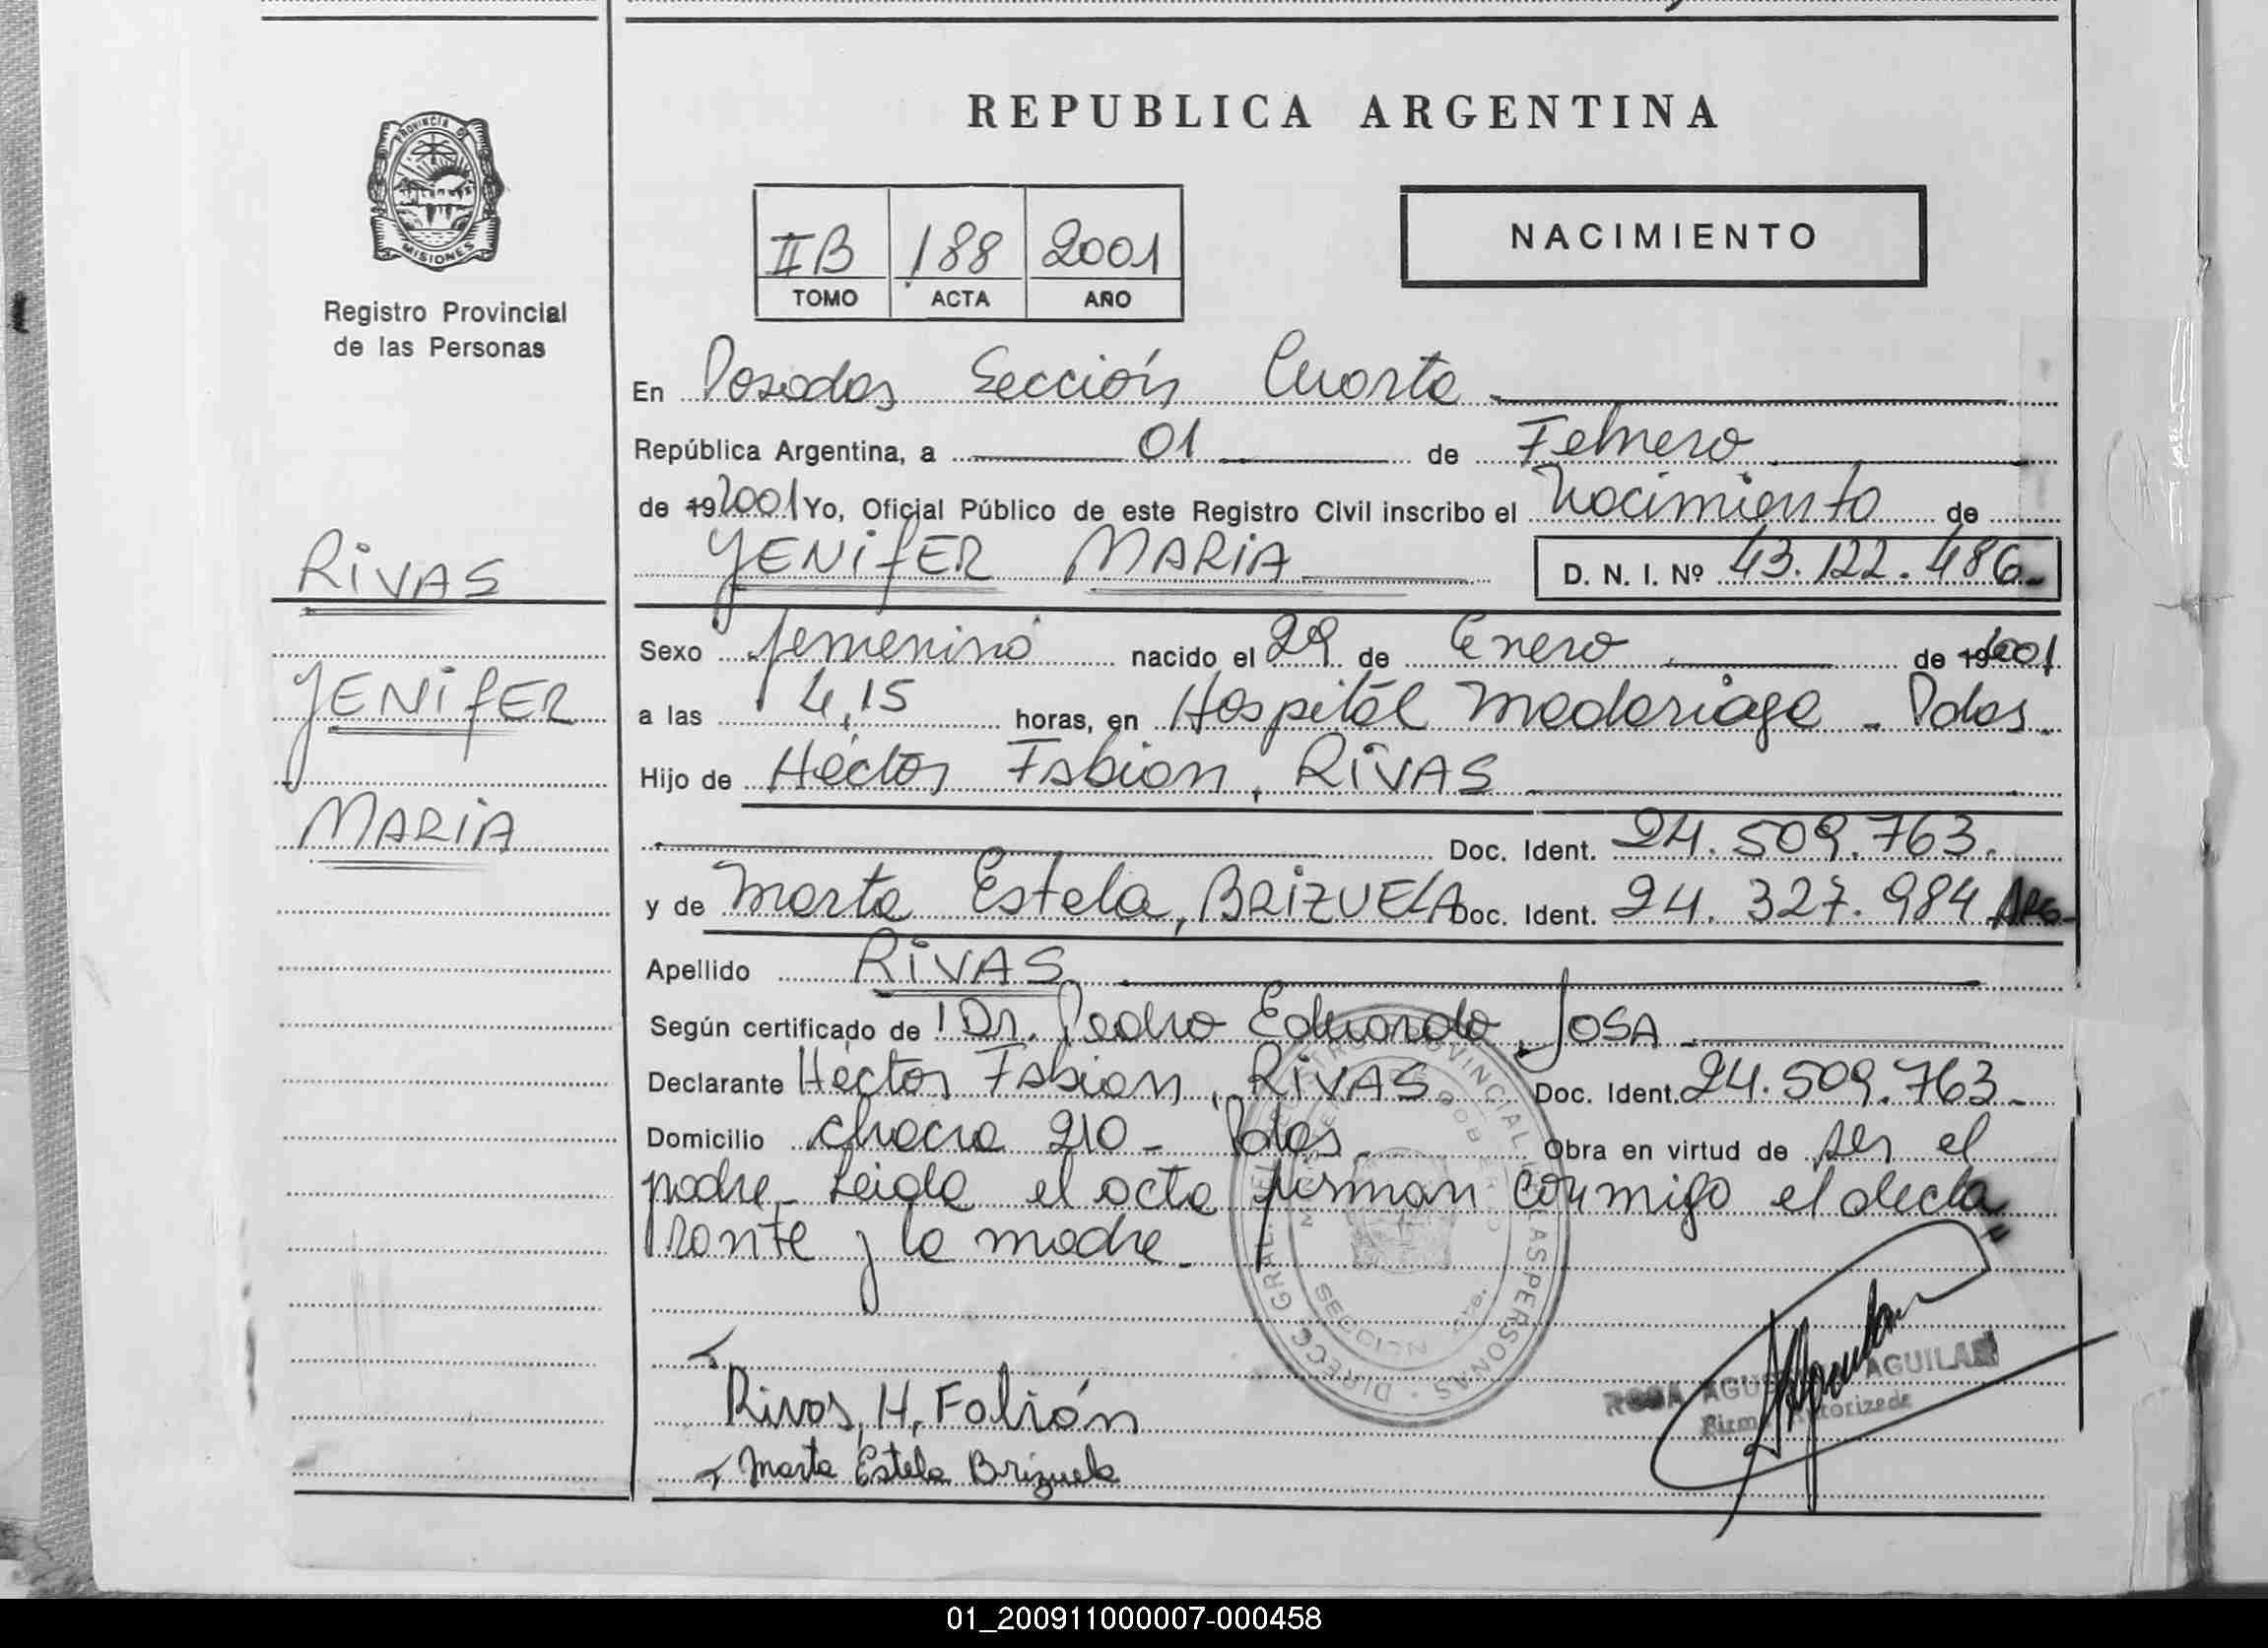 REPUBLICA ARGENTINA
PROVINCIA D
MISIONES
Registro Provincial
de las Personas
II B 188 2001
TOMO ACTA AÑO
NACIMIENTO
En Posadas Sección Cuarta
República Argentina, a 01 de Febrero
de 19 2001 Yo, Oficial Público de este Registro Civil inscribo el Nacimiento de
YENIFER MARIA D. N. I. Nº 43.122.486
RIVAS
YENIFER
MARIA
Sexo femenino nacido el 29 de Enero de 19 2001
a las 4,15 horas, en Hospital Madariaga - Pdas.
Hijo de Héctor Fabian, RIVAS
Doc. Ident. 24.509.763.
y de Marta Estela, BRIZUELA Doc. Ident. 24.327.984 Arg.
Apellido RIVAS
Según certificado de Dr. Pedro Eduardo, JOSA
Declarante Héctor Fabian, RIVAS Doc. Ident. 24.509.763.
Domicilio chacra 210 - Pdas. Obra en virtud de ser el
padre. Leida el acta firman conmigo el decla
rante y la madre.
DIRECC. GRAL. DEL REGISTRO PROVINCIAL DE LAS PERSONAS
Rivas, H. Fabián
Marta Estela Brizuela
ROSA AGUS AGUILAR
Firma Autorizada
01_200911000007-000458